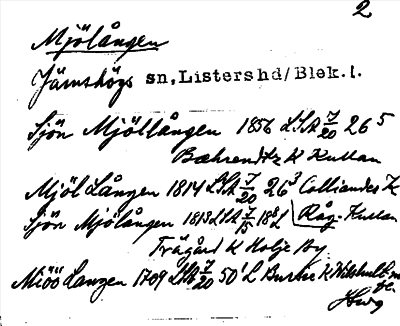 2
Mjölången
Jämshögs sn, Listers hd/Blek.l.
Sjön Mjöllången 1856 LSA 7/20 26 5
Bæhrendtz K Kullan
Mjöl Lången 1814 LSA 7/20 26 3 Colliander K
Sjön Mjölången 1818 LSA 7/15 18 Råg-Kullan
Trägård K Holje by
Miöö Langen 1709 7/20 50 L K
Hwg